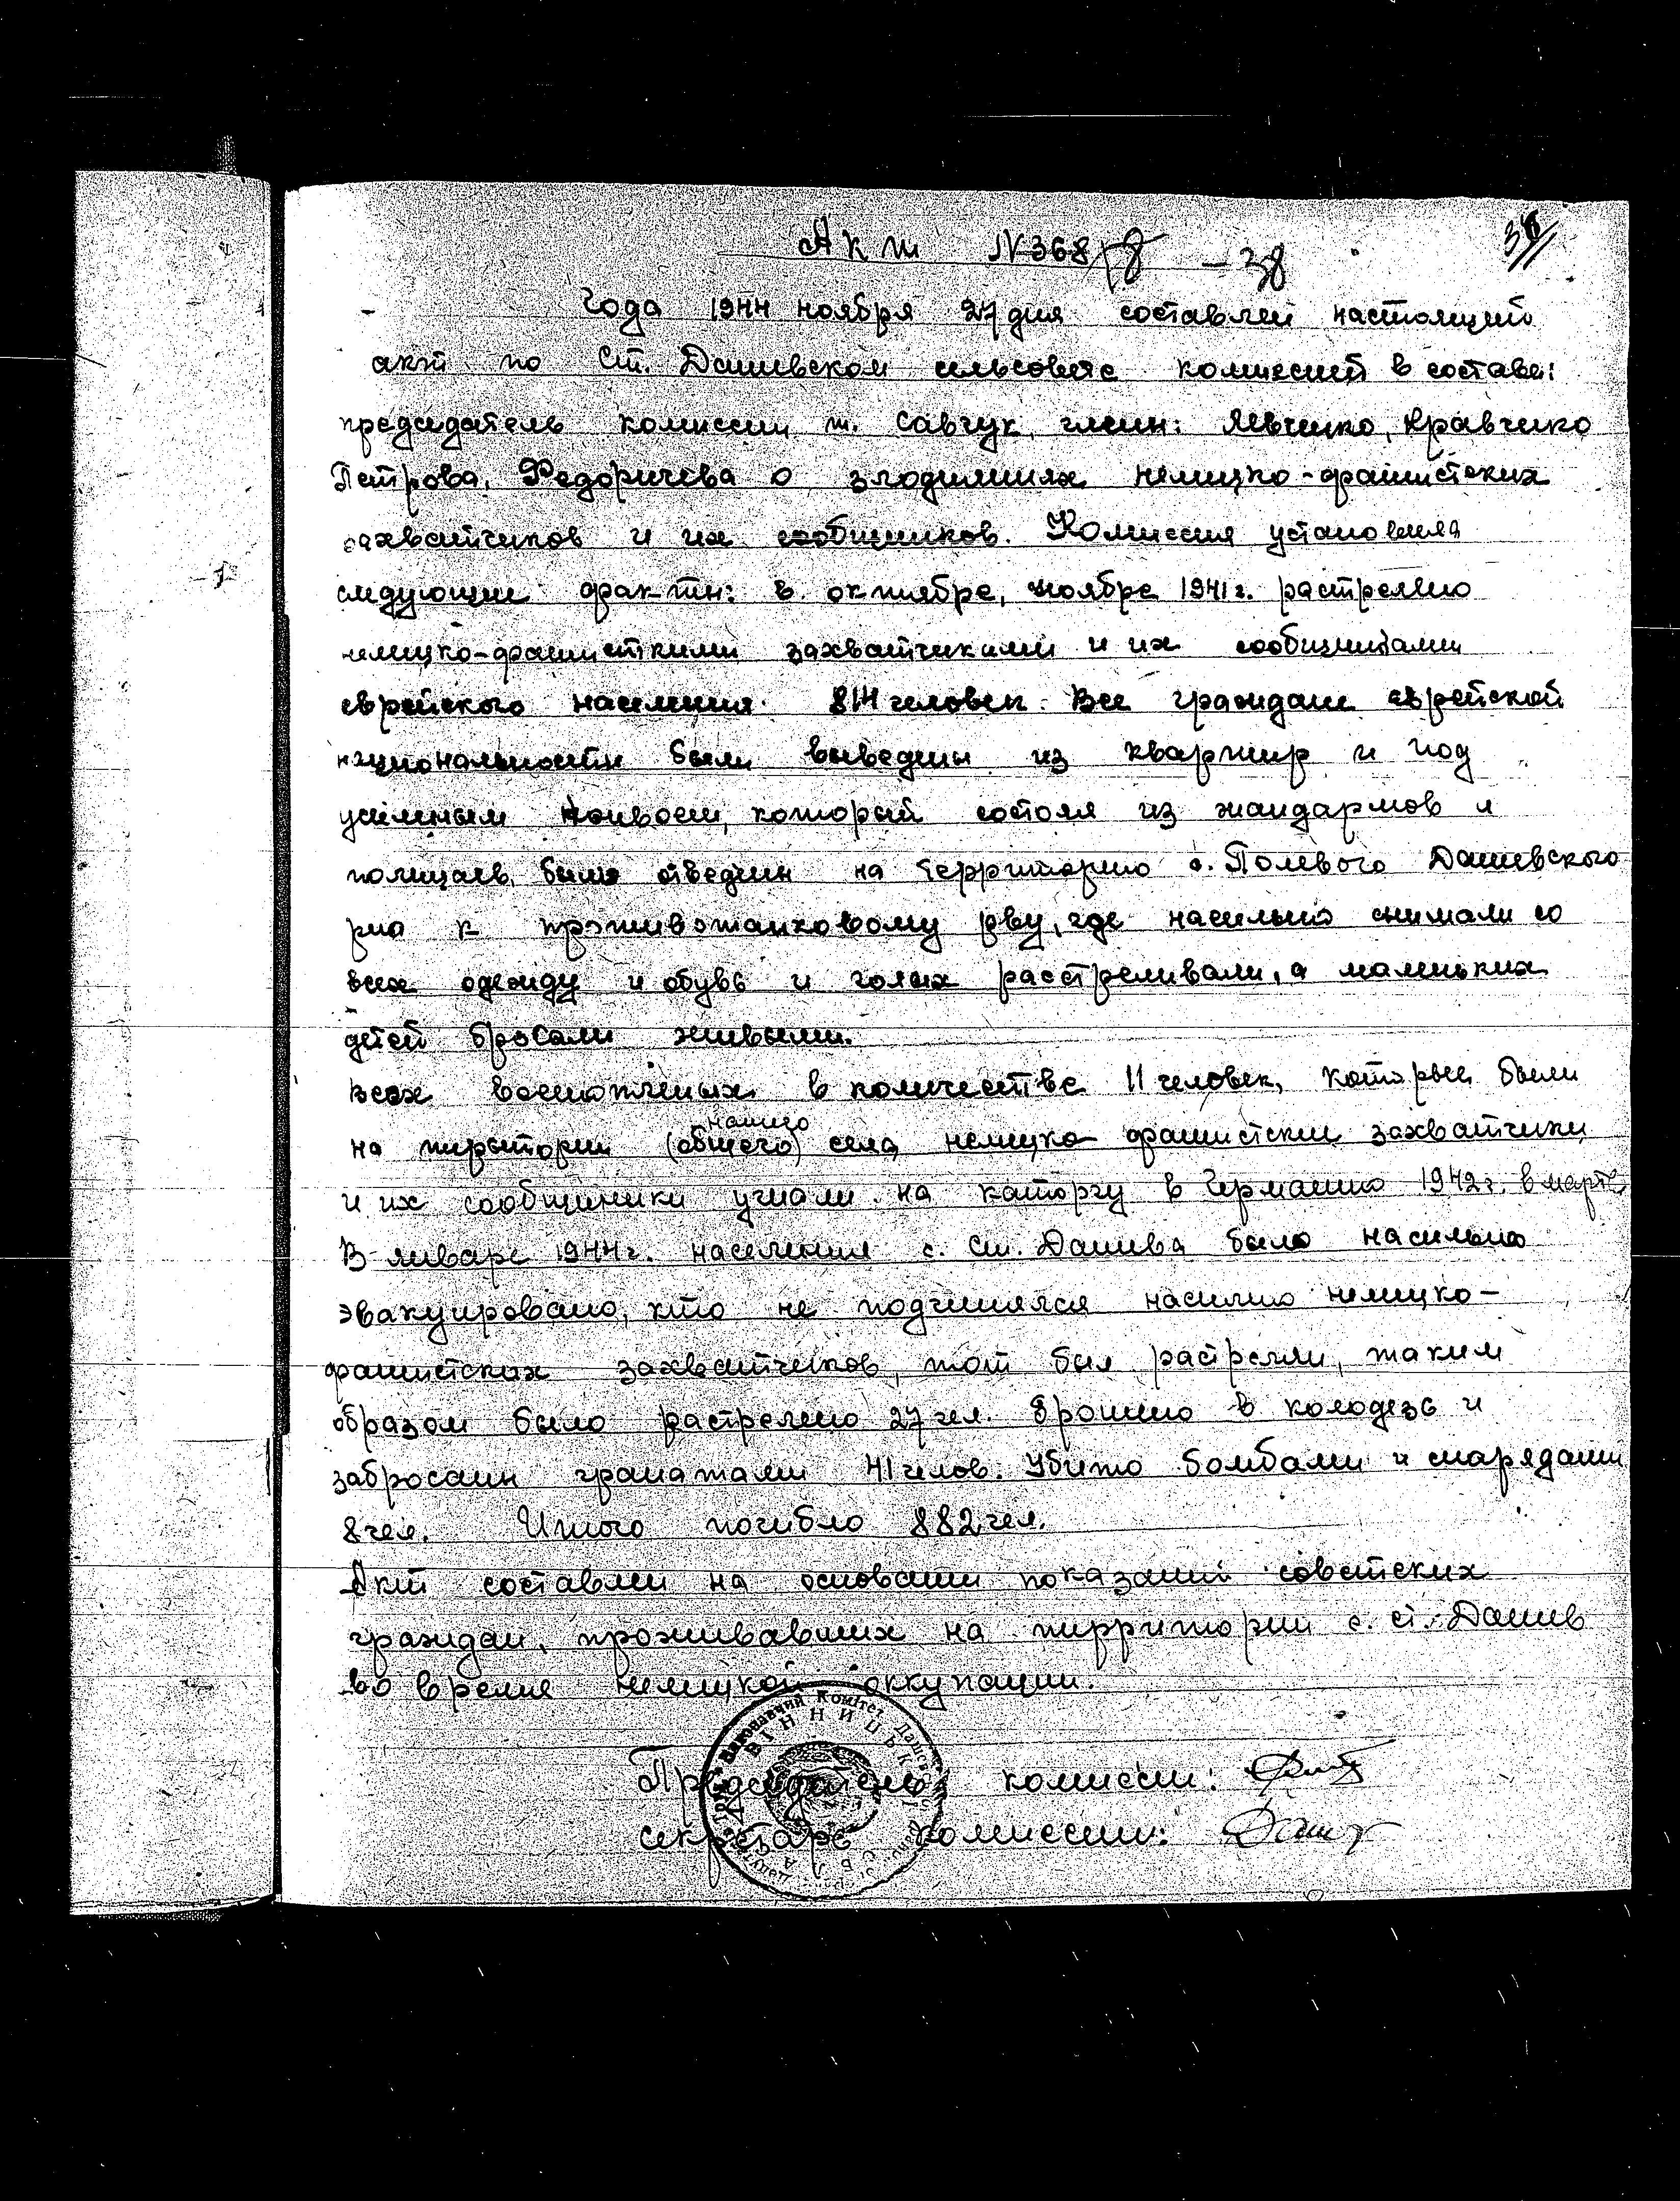 Акт №368 – 38
36
Года 1944 ноября 27 дня составлен настоящий
акт по Ст. Дашевском сельсовете комиссией в составе:
председатель комиссии т. Савчук, член: Левченко, Кравченко
Петрова, Федоричева о злодеяниях немецко-фашистских
захватчиков и их сообщников. Комиссия установила
следующие факты: в октябре, ноябре 1941 г. растреляно
немецко-фашистскими захватчиками и их сообщниками
еврейского населения 814 человек. Все граждане еврейской
национальности были выведены из квартир и под
усиленым конвоем, который состоял из жандармов и
полицаев, были отведены на территорию с. Полевого Дашевского
р-на к противотанковому рву, где насильно снимали со
всех одежду и обувь и голых расстреливали, а маленьких
детей бросали живыми.
Всех военопленых в количестве 11 человек, которые были
нашего
на територии (общего) села, немецко фашистские захватчики
и их сообщники угнали на каторгу в Германию 1942 г. в марте.
В январе 1944 г. население с. Ст. Дашева было насильно
эвакуировано, кто не подчинялся насилию немецко-
фашистских захватчиков, тот был растрелян, таким
образом было растреляно 27 чел. Брошено в колодезь и
забросаны гранатами 41 челов. Убито бомбами и снарядами
8 чел. Итого погибло 882 чел.
Акт составлен на основании показаний советских
граждан, проживавших на территории с. ст. Дашев
во время немецкой оккупации.
Виконавчий Комітет
ВІННИЦЬК
Председатель комиссии:
секретарь комиссии: